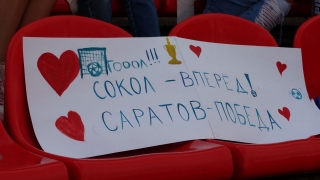 ГООЛ!!!
СОКОЛ - ВПЕРЕД!
САРАТОВ - ПОБЕДА